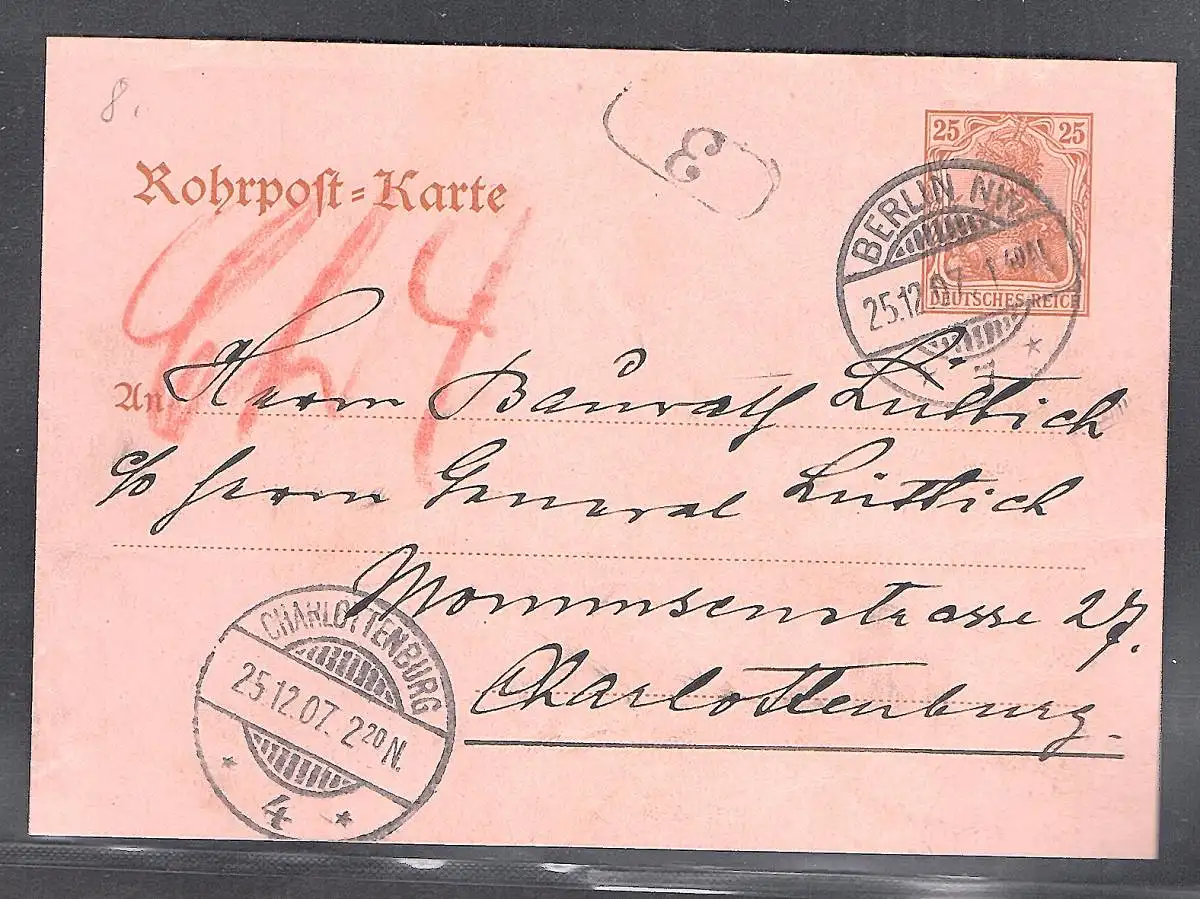 8.
3
25 25
Rohrpost-Karte
DEUTSCHES REICH
BERLIN NW
25.12.07. 1 40 N.
Ch 4
An Herrn Baŭrath Lüttich
c/o Herrn General Lüttich
Mommsenstrasse 27.
Charlottenburg.
CHARLOTTENBURG
25.12.07. 2 20 N.
* 4 *